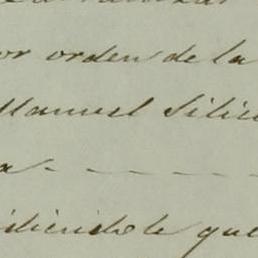 or orden de la
Manuel Silic
a - - - - -
idiéndole que